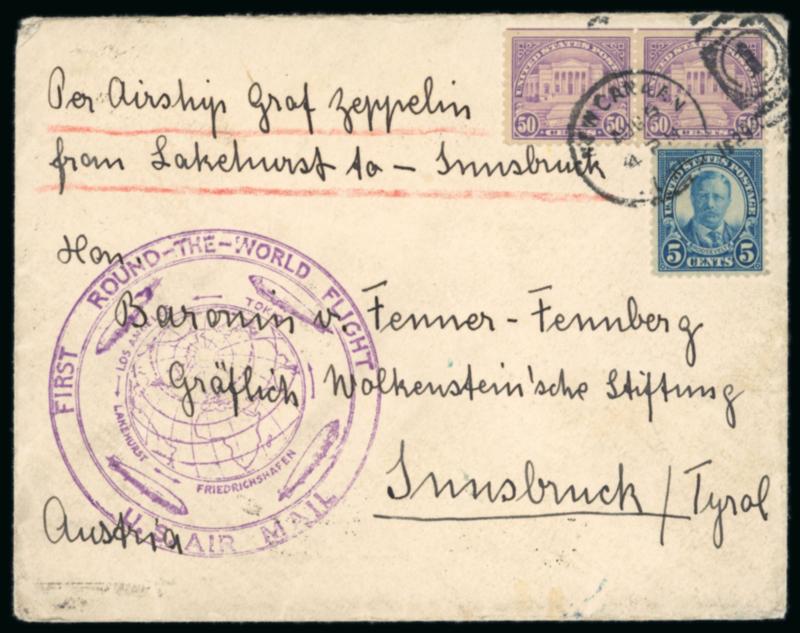 Per Airship Graf Zeppelin
from Lakehurst to – Innsbruck
Hon.
Baronin v. Fenner-Fennberg
Gräflich Wolkenstein'sche Stiftung
Innsbruck / Tyrol
Austria
UNITED STATES POSTAGE
50 CENTS 50
UNITED STATES POSTAGE
50 CENTS 50
UNITED STATES POSTAGE
ROOSEVELT
5 CENTS 5
NEW CANAAN
1
FIRST ROUND-THE-WORLD FLIGHT
U.S. AIR MAIL
LOS AN
LAKEHURST
FRIEDRICHSHAFEN